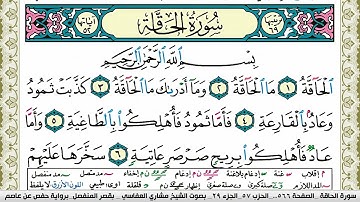 سُورَةُ الْحَاقَّةِ
بِسْمِ اللَّهِ الرَّحْمَٰنِ الرَّحِيمِ
الْحَاقَّةُ ١ مَا الْحَاقَّةُ ٢ وَمَا أَدْرَىٰكَ مَا الْحَاقَّةُ ٣ كَذَّبَتْ ثَمُودُ
وَعَادٌ بِالْقَارِعَةِ ٤ فَأَمَّا ثَمُودُ فَأُهْلِكُوا بِالطَّاغِيَةِ ٥ وَأَمَّا
عَادٌ فَأُهْلِكُوا بِرِيحٍ صَرْصَرٍ عَاتِيَةٍ ٦ سَخَّرَهَا عَلَيْهِمْ
سورة الحاقة. الصفحة ٥٦٦. الحزب ٥٧. الجزء ٢٩. بصوت الشيخ مشاري العفاسي. بقصر المنفصل. برواية حفص عن عاصم